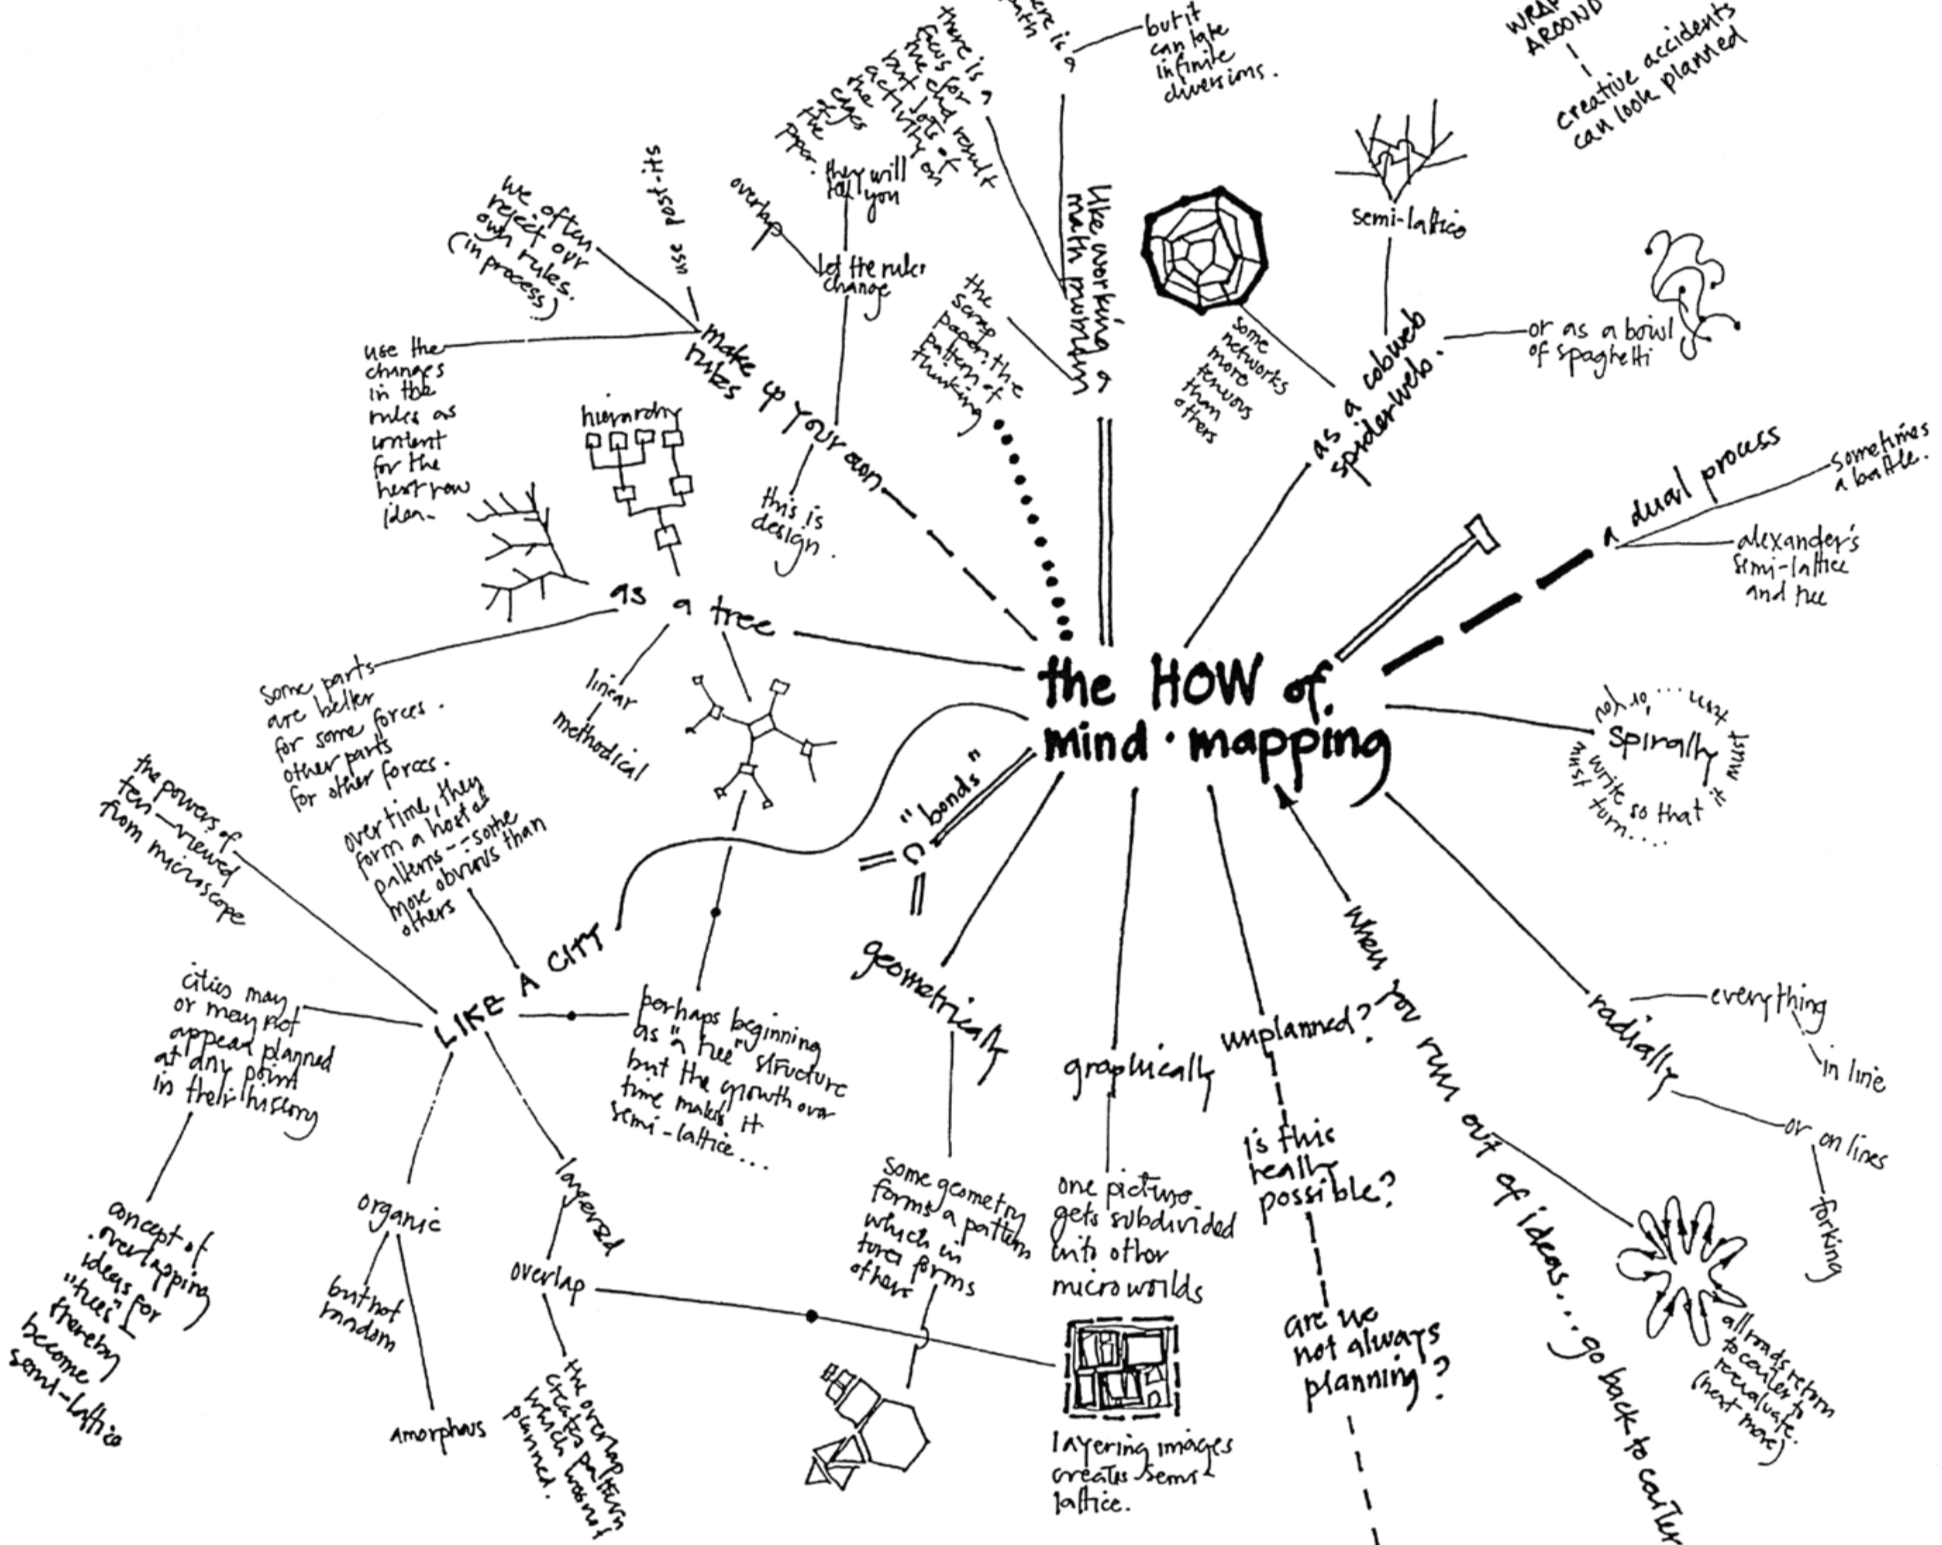 the HOW of
mind·mapping
but it
can take
infinite
diversions.
there is a
focus for
the end result
but lots of
activity on
the
edges
the
paper.
like working a
math problem
the
scrap
paper: the
pattern of
thinking
WRAP
AROUND
creative accidents
can look planned
semi-lattice
as a cobweb
spiderweb.
some
networks
more
tenuous
than
others
or as a bowl
of spaghetti
a dual process
sometimes
a battle.
alexander's
semi-lattice
and tree
spirally
or you must
write so that it must
must turn....
radially
everything
in line
or on lines
forking
when you run out of ideas... go back to center
all roads return
to center to
reevaluate.
(next move)
unplanned?
is this
really
possible?
are we
not always
planning?
graphically
one picture
gets subdivided
into other
microworlds
layering images
creates semi-
lattice.
geometrically
some geometry
forms a pattern
which in
turn forms
others
"bonds"
C
LIKE A CITY
the powers of
ten—viewed
from microscope
over time, they
form a host of
patterns---some
more obvious than
others
cities may
or may not
appear planned
at any point
in their history
concept of
overlapping
ideas for
"trees"
thereby
become
semi-lattice
organic
but not
random
amorphous
layered
overlap
the overlap
creates pattern
which was not
planned.
perhaps beginning
as "a tree" structure
but the growth over
time makes it
semi-lattice...
as a tree
hierarchy
linear
methodical
some parts
are better
for some forces.
other parts
for other forces.
make up your own
rules
we often
reject our
own rules.
(in process)
use post-its
use the
changes
in the
rules as
content
for the
next new
idea-
overlap
they will
tell you
let the rules
change
this is
design.